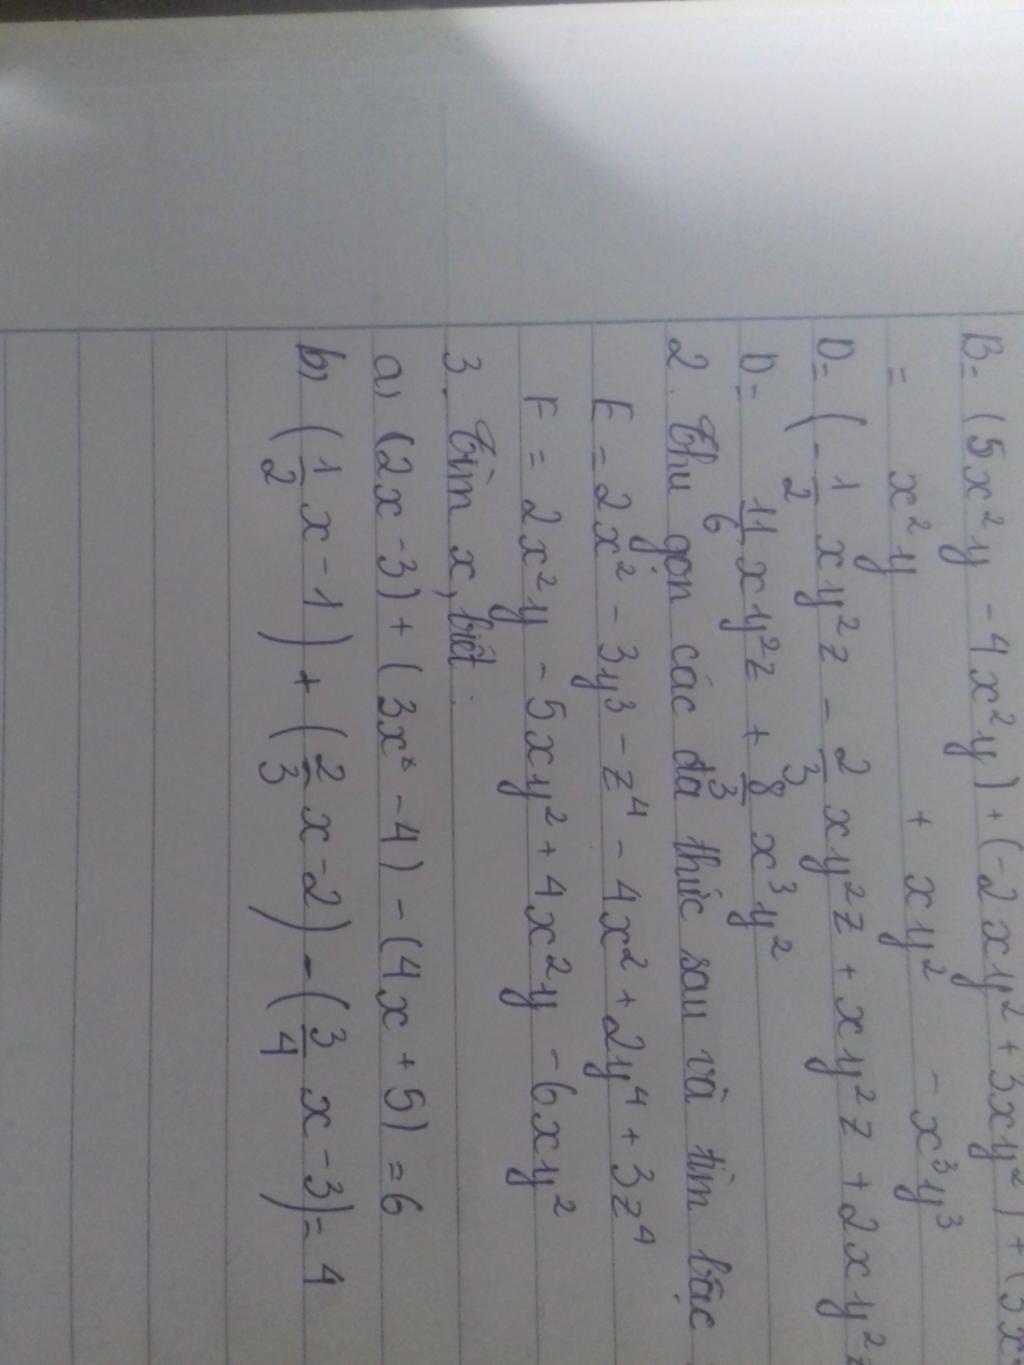 B = (5x²y - 4x²y) + (-2xy² + 3xy²) + (3x
= x²y + xy² - x³y³
D = (-1/2 xy²z - 2/3 xy²z + xy²z + 2xy²z
D = 11/6 xy²z + 8/3 x³y²
2. Thu gọn các đa thức sau và tìm bậc
E = 2x² - 3y³ - z⁴ - 4x² + 2y⁴ + 3z⁴
F = 2x²y - 5xy² + 4x²y - 6xy²
3. Tìm x, biết:
a) (2x - 3) + (3x - 4) - (4x + 5) = 6
b) (1/2 x - 1) + (2/3 x - 2) - (3/4 x - 3) = 4